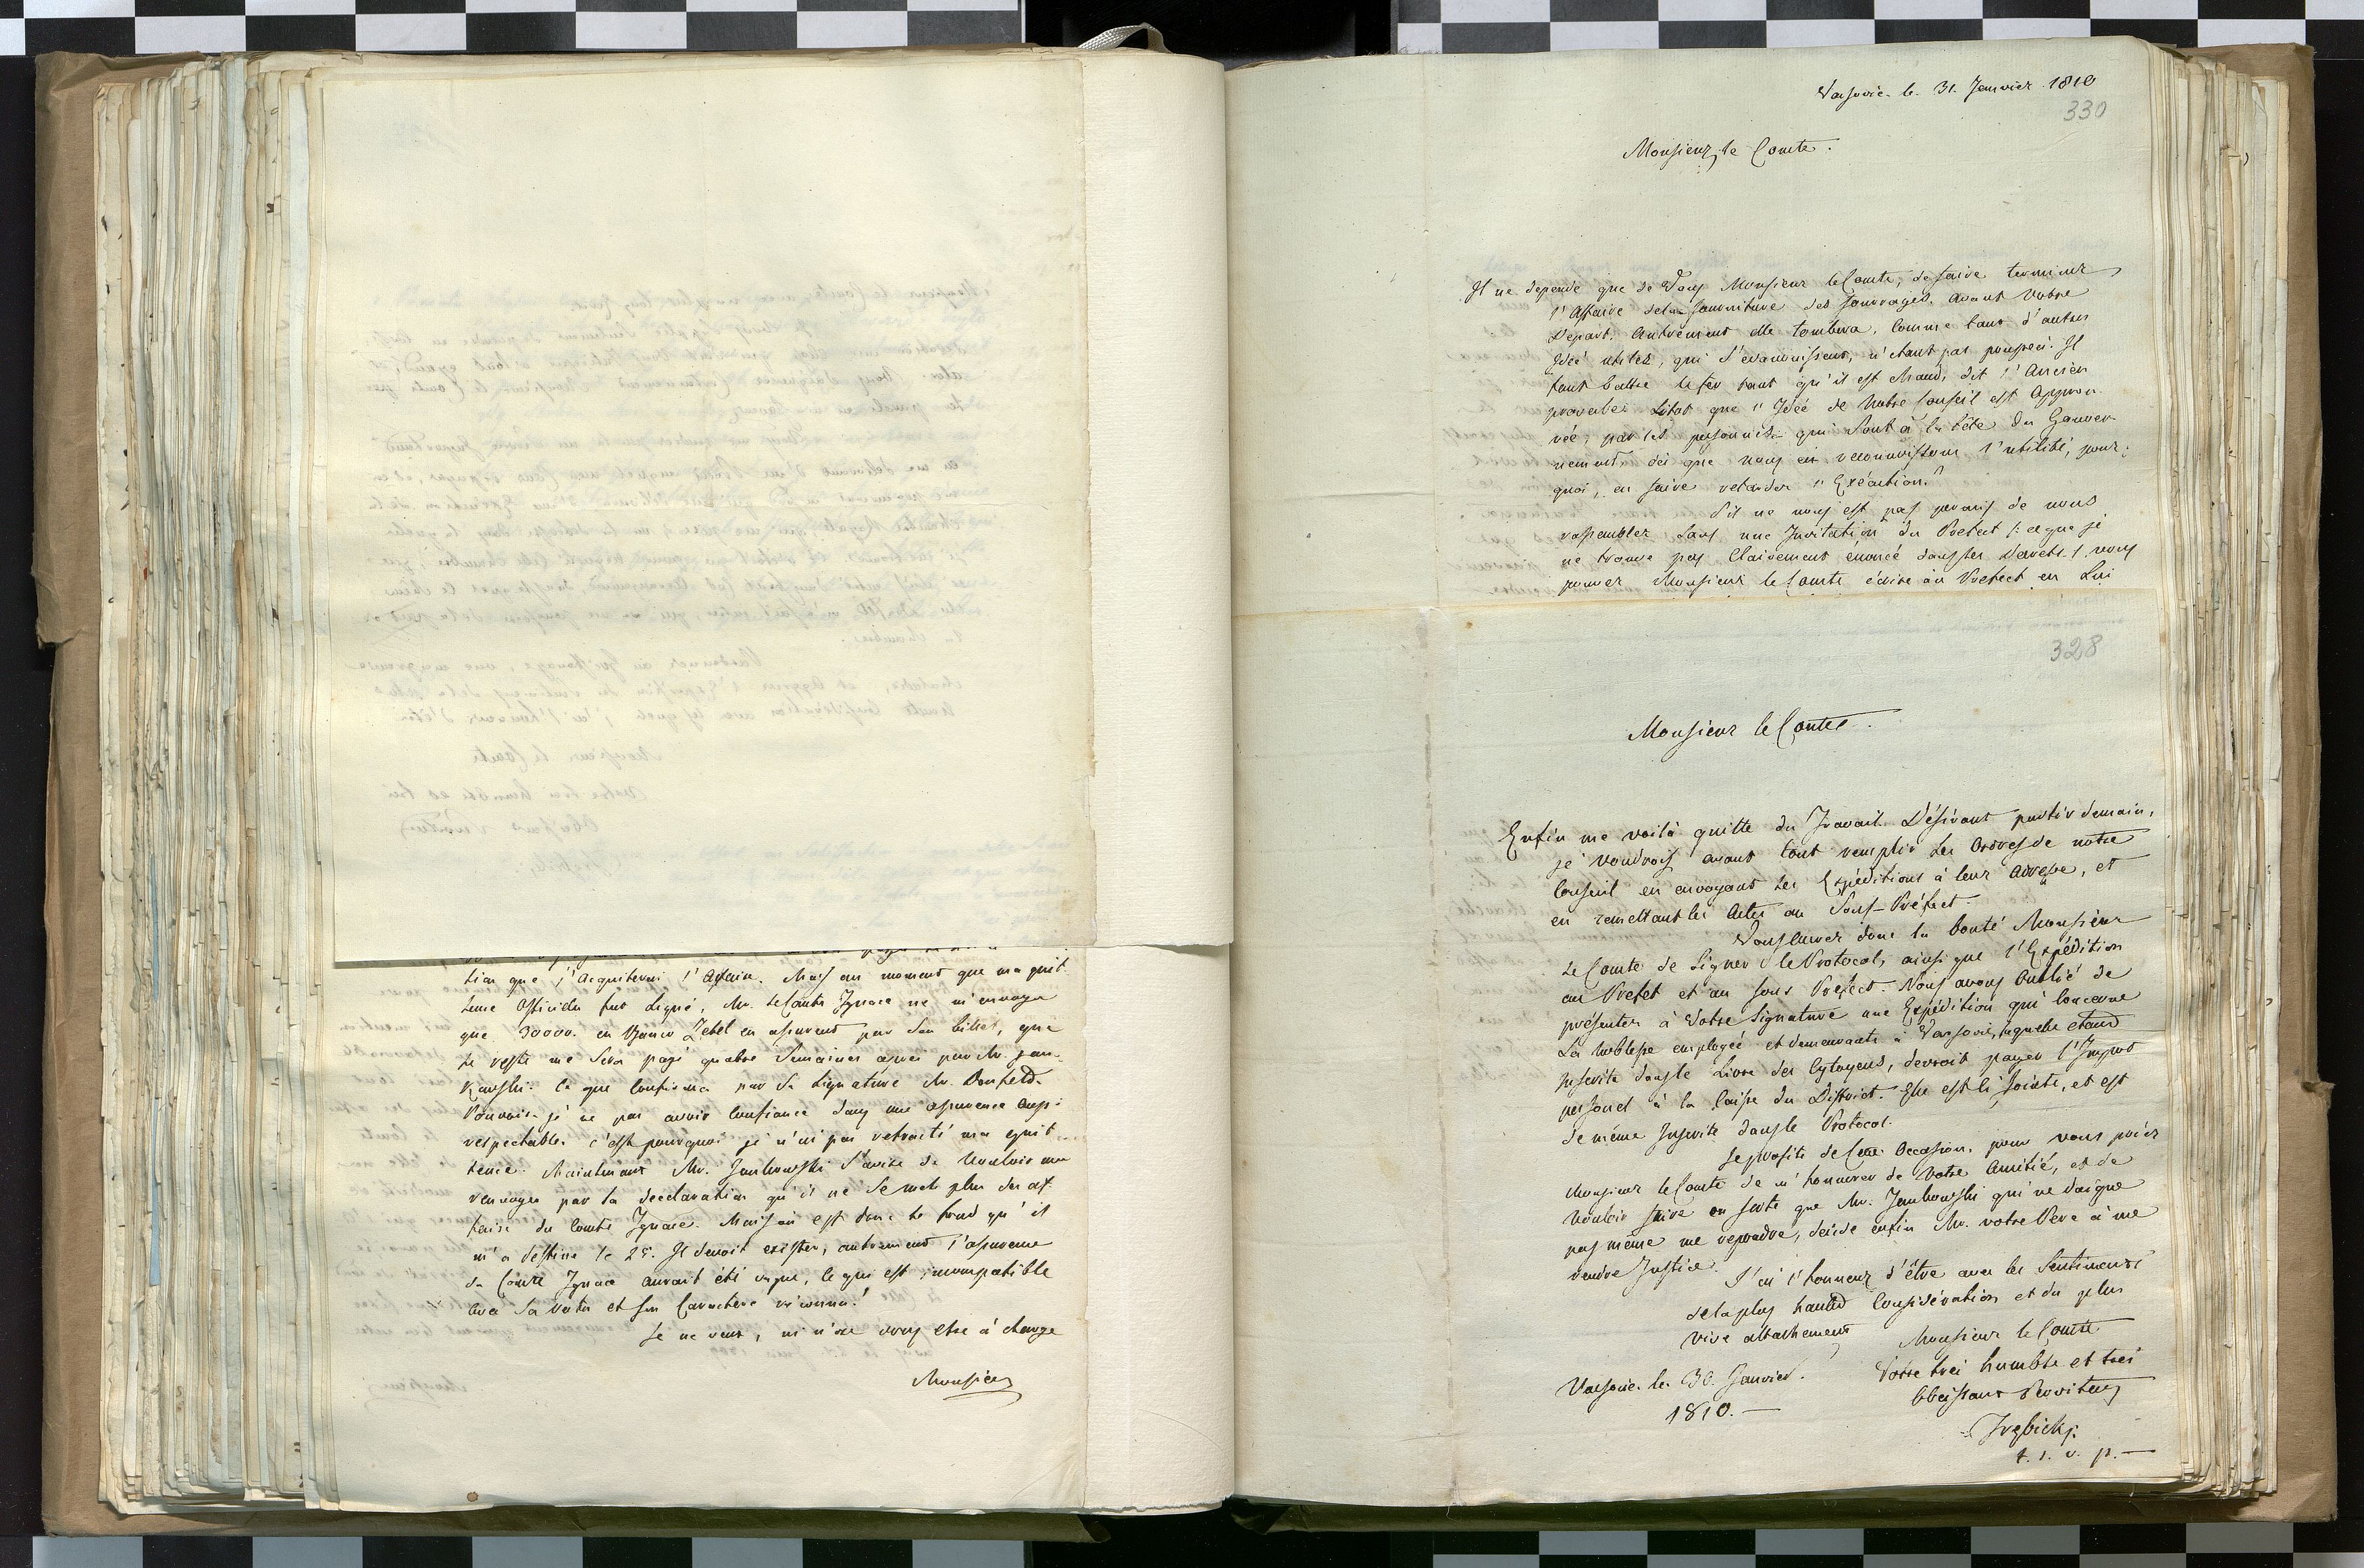 tion que j'acquiterai l'affaire. Mais au moment que ma quit-
tence Officielle fut signé, Mr. le Comte Ignace ne m'envoya
que 30000. en Banco Zetel en assurent par son billet, que
le reste me sera payé quatre Semaines après par Mr. Jan-
kowski. Ce que confirma par sa signature Mr.
Pouvois-je ne pas avoir confiance dans une assurence aussi
respectable. c'est pourquoi je n'ai pas retracté ma quit-
tence. Maintenant Mr. Jankowski s'avise de vouloir me
renvoyer par la declaration qu'il ne se mele plus des af-
faire du Comte Ignace. Mais où est donc le fond qu'il
m'a destiné le 25. Il devoit exister, autrement l'assurence
du Comte Ignace auroit été vague, ce qui est incompatible
avec sa vertu et son Caractere reconnu!
Je ne veux, ni n'ose vous etre à charge
Monsieur
Varsovie le 31. Janvier 1810
330
Monsieur le Comte.
Il ne depend que de Vous Monsieur le Comte, de faire terminer
l'Affaire de la fourniture des fourrages. avant Votre
Depart. Autrement elle tombera, Comme tant d'autres
Idée utiles, qui s'evanouissent, n'étant pas poussées. Il
faut battre le fer tant qu'il est chaud, dit l'Ancien
proverbe. Sitot que l'Idée de Notre Conseil est approu-
vée, par les personnes qui sont à la tête du Gouver-
nement, dès que nous en reconnoissons l'utilité, pour-
quoi, en faire retarder l'Exécution?
S'il ne nous est pas permis de nous
rassembler sans une Invitation du Prefect /: ce que je
ne trouve pas Clairement énoncé dans les Decrets :/ vous
pouvez Monsieur le Comte écrire au Prefect en Lui
328
Monsieur le Comte.
Enfin me voilà quitte du Travail. Désirant partir demain,
je voudrois avant tout remplir les Ordres de notre
Conseil en envoyant les Expéditions à leur adresse, et
en remettant les Actes au Sous-Préfect.
Vous aurez donc la bonté Monsieur
le Comte de signer le Protocol, ainsi que l'Expédition
au Prefet et au sous Prefect. Nous avons oublié de
présenter à Votre Signature une Expédition qui concerne
La Noblesse employée et demeurante à Varsovie, laquelle etant
inscrite dans le Livre des Cytoyens, devroit payer l'Impot
personel à la Caisse du District. Elle est ci jointe, et est
de même Inscrite dans le Protocol.
Je profite de Cette Occasion, pour vous prier
Monsieur le Comte de m'honnorer de Votre Amitié, et de
vouloir faire en sorte que Mr. Jankowski qui ne daigne
pas même me repondre, decide enfin Mr. votre Pere à me
rendre Justice.
J'ai l'honneur d'être avec les Sentiments
de la plus haute Considération et du plus
vive attachement
Monsieur le Comte
Votre trés humble et trés
Obeissant Serviteur
Trębicki.
t. s. v. p.
Varsovie le 30. Janvier.
1810.